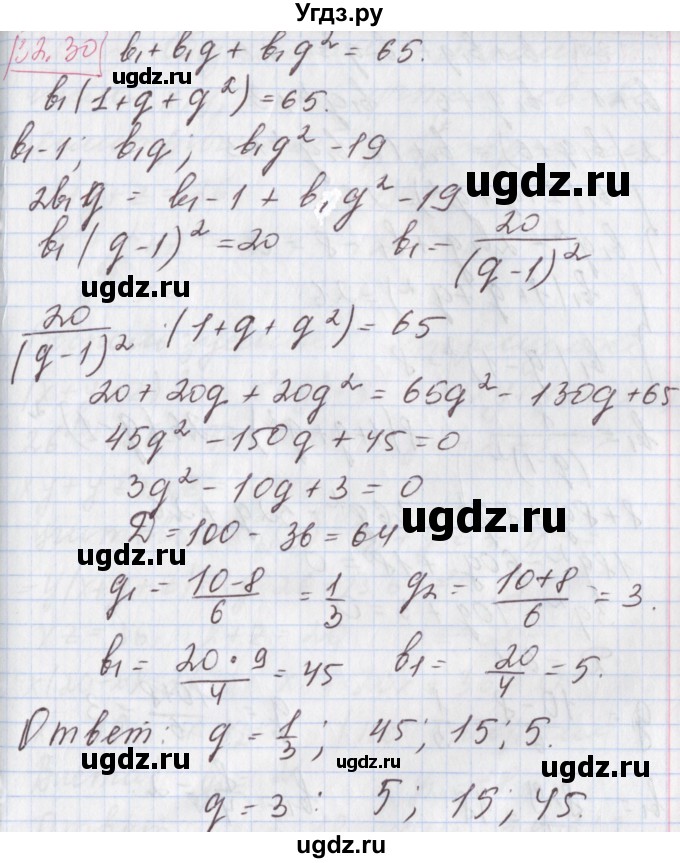 Угдз.ру
32.30 b₁ + b₁q + b₁q² = 65.
b₁(1+q+q²) = 65.
b₁-1; b₁q; b₁q² -19
ugdz.ru
2b₁q = b₁-1 + b₁q² -19
ugdz.ru
b₁(q-1)² = 20 b₁ = 20/(q-1)²
ugdz.ru
20/(q-1)² · (1+q+q²) = 65
20+20q+20q² = 65q² - 130q+65
45q² -150q+45=0
3q² -10q+3=0
ugdz.ru
D=100-36=64
ugdz.ru
q₁ = (10-8)/6 = 1/3 q₂ = (10+8)/6 = 3.
b₁ = (20·9)/4 = 45 b₁ = 20/4 = 5.
Ответ: q = 1/3; 45; 15; 5.
ugdz.ru
ugdz.ru
q=3: 5; 15; 45.
ugdz.ru
ugdz.ru